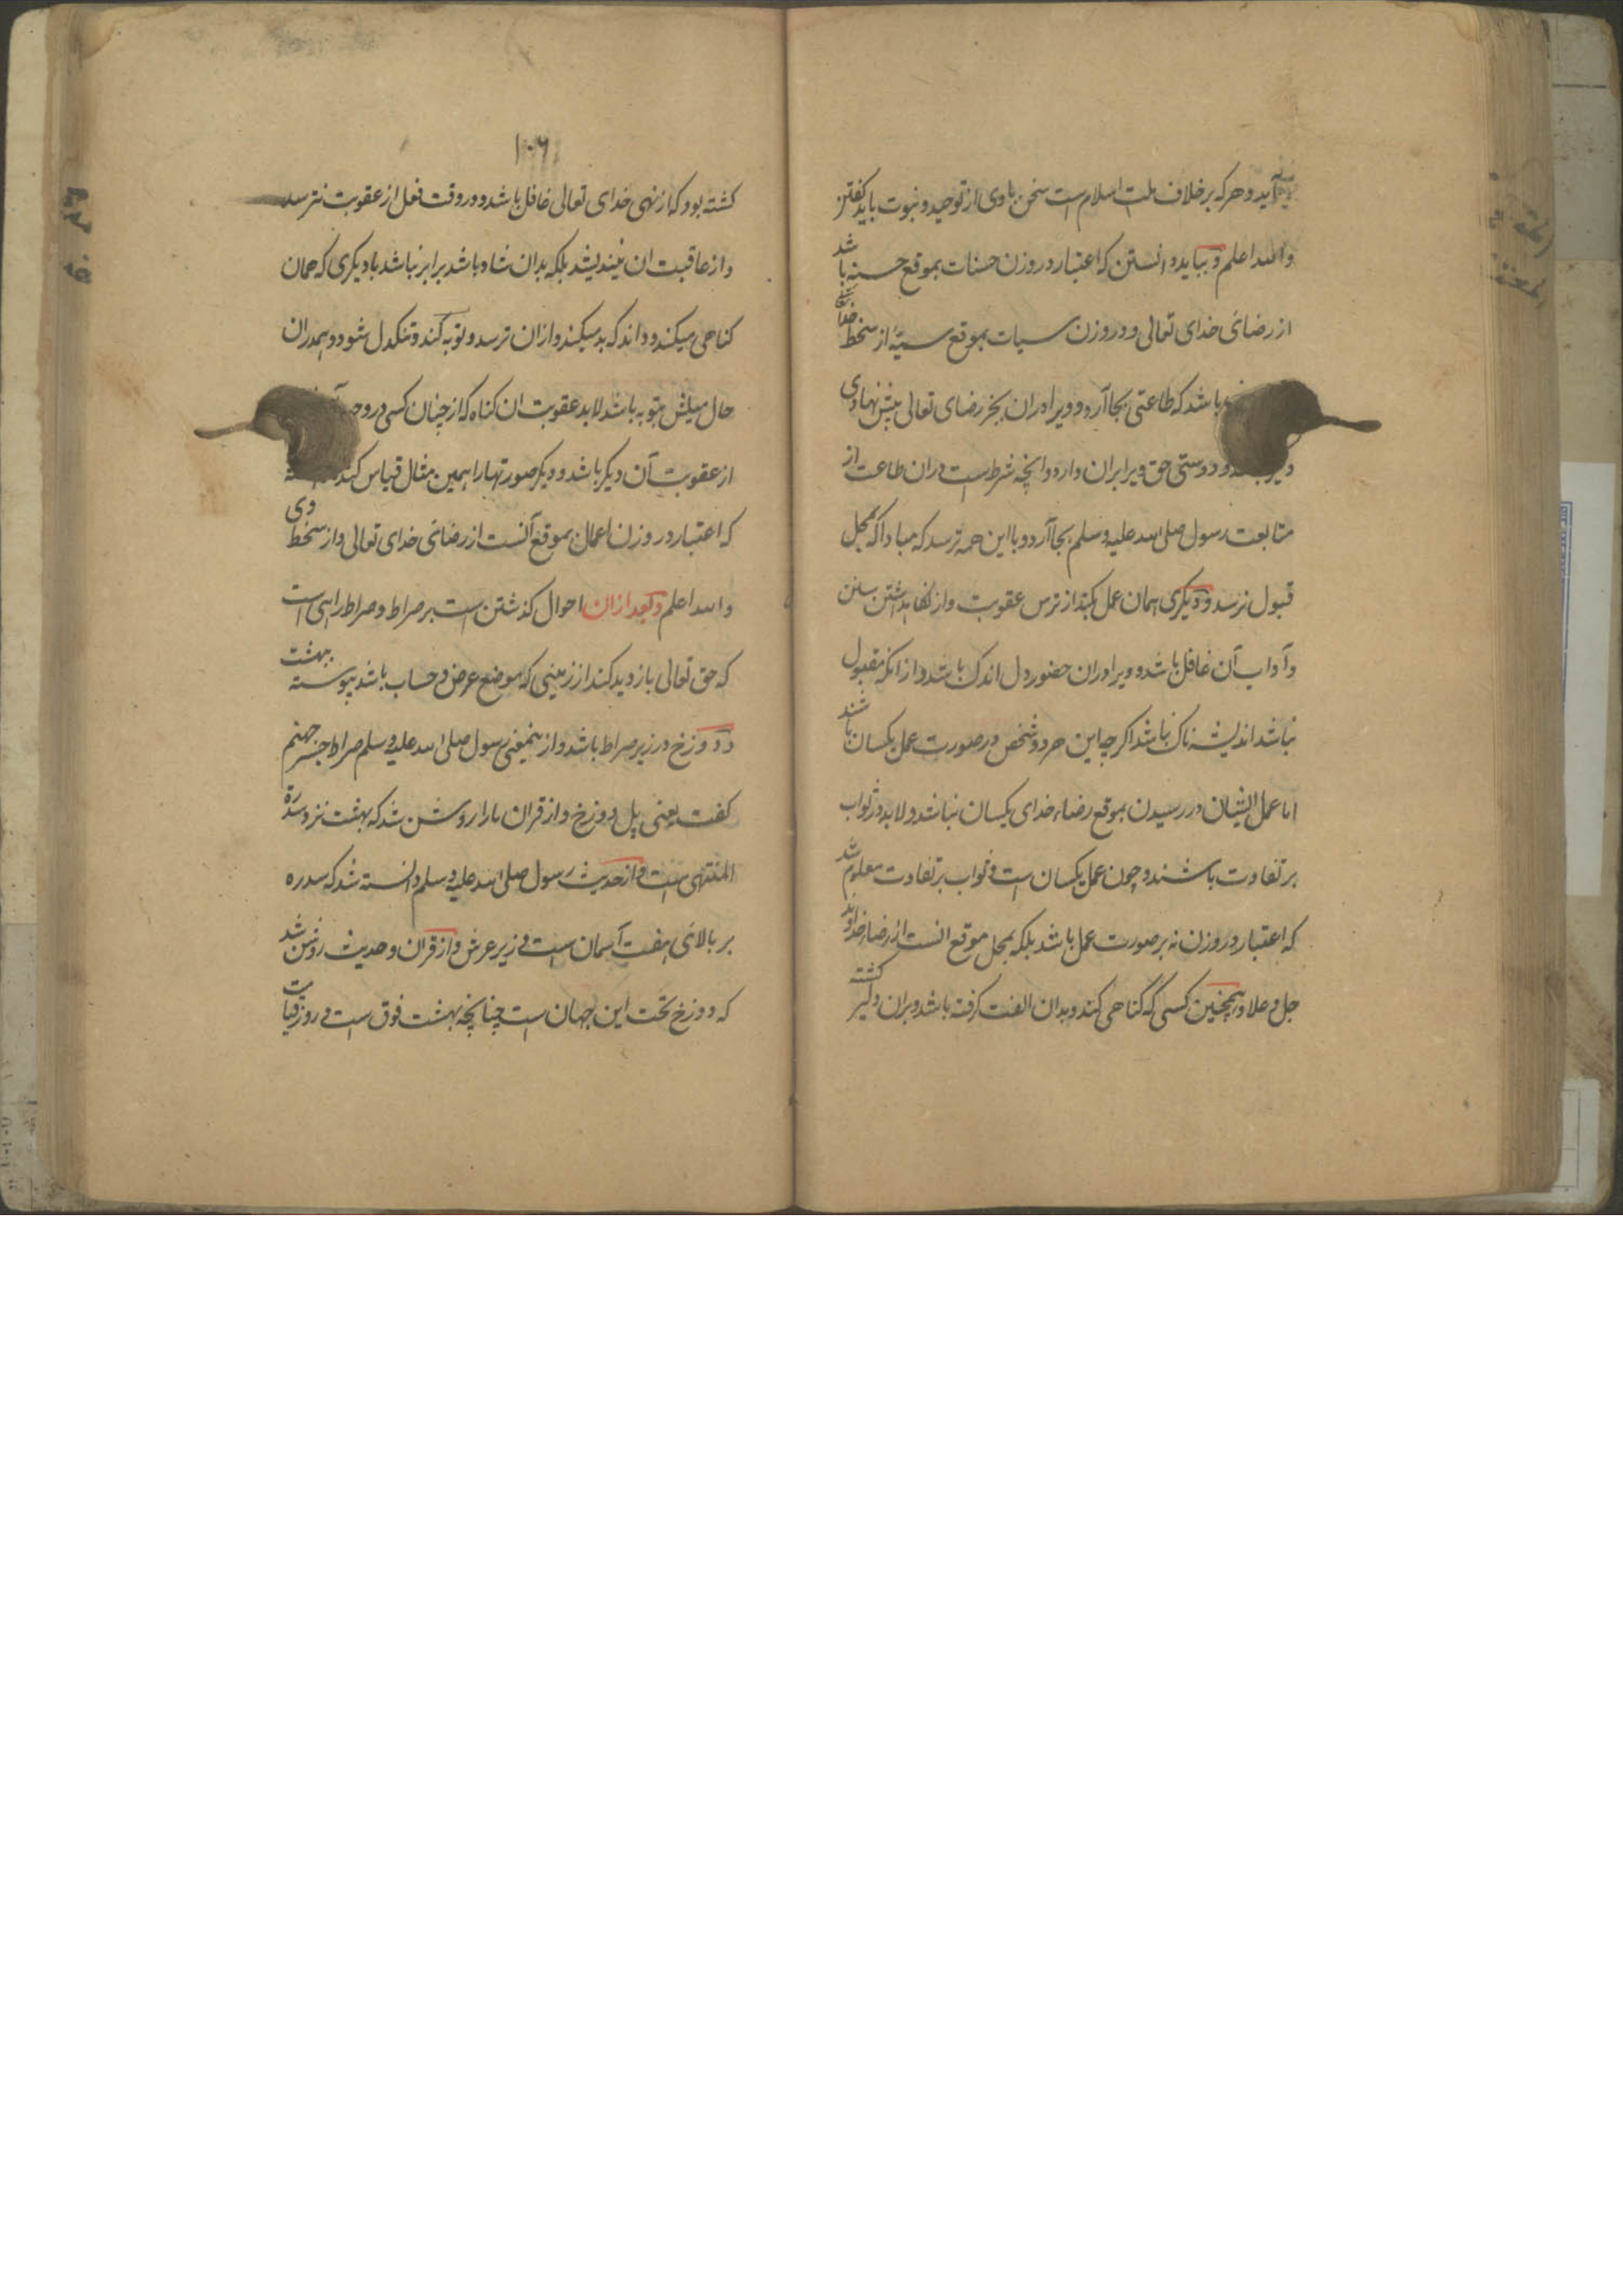 آید و هر که بر خلاف ملت اسلام است سخن با وی از توحید و نبوت باید گفتن
والله اعلم و بباید دانستن که اعتبار در وزن حسنات بموقع حسنه باشد
از رضای خدای تعالی و در وزن سیات بموقع سیئه از سخط
باشد که طاعتی بجا آرد و ویرا دران بجز رضای تعالی پیش نهادی
و دوستی حق ویرا بران دارد و انچه شرط است دران طاعت از
متابعت رسول صلی الله علیه وسلم بجا آرد و با این همه ترسد که مبادا که بمحل
قبول نرسد و دیگری همان عمل بکند از ترس عقوبت و از نگاهداشتن سنن
و آداب آن غافل باشد و ویرا دران حضور دل اندک باشد و از انکه مقبول
نباشد اندیشه ناک نباشد اگر چه این هر دو شخص در صورت عمل یکسان باشند
اما عمل ایشان در رسیدن بموقع رضاء خدای یکسان نباشد و لابد در ثواب
بر تفاوت باشند و چون عمل یکسان است و ثواب بر تفاوت معلوم شد
که اعتبار در وزن نه بر صورت عمل باشد بلکه بمحل موقع انست از رضاء خداوند
جل و علا و همچنین کسی که گناهی کند و بدان الفت گرفته باشد و بران دلیر گشته
۱۰۶
کشته بود که از نهی خدای تعالی غافل باشد و در وقت فعل از عقوبت نترسد
و از عاقبت ان نیندیشد بلکه بدان شاد باشد برابر نباشد با دیگری که همان
کناهی میکند و داند که بد میکند و ازان ترسد و توبه کند و تنکدل شود و همدران
حال میلش بتوبه باشد لابد عقوبت ان کناه که از چنان کسی در وجود
از عقوبت آن دیگر باشد و دیگر صورتها را همین مثال قیاس کند
که اعتبار در وزن اعمال بموقع آنست از رضای خدای تعالی و از سخط وی
والله اعلم و بعد ازان احوال کذشتن است بر صراط و صراط راهی است
که حق تعالی بازدید کند از زمینی که موضع عرض و حساب باشد پیوسته ببهشت
و دوزخ در زیر صراط باشد و از ینمعنی رسول صلی الله علیه وسلم صراط را جسر جهنم
کفت یعنی پل دوزخ و از قران ما را روشن شد که بهشت نزد سدرة
المنتهی است و از حدیث رسول صلی الله علیه وسلم دانسته شد که سدره
بر بالای هفت آسمان است و زیر عرش و از قران و حدیث روشن شد
که دوزخ تحت این جهان است چنانچه بهشت فوق است و روز قیامت